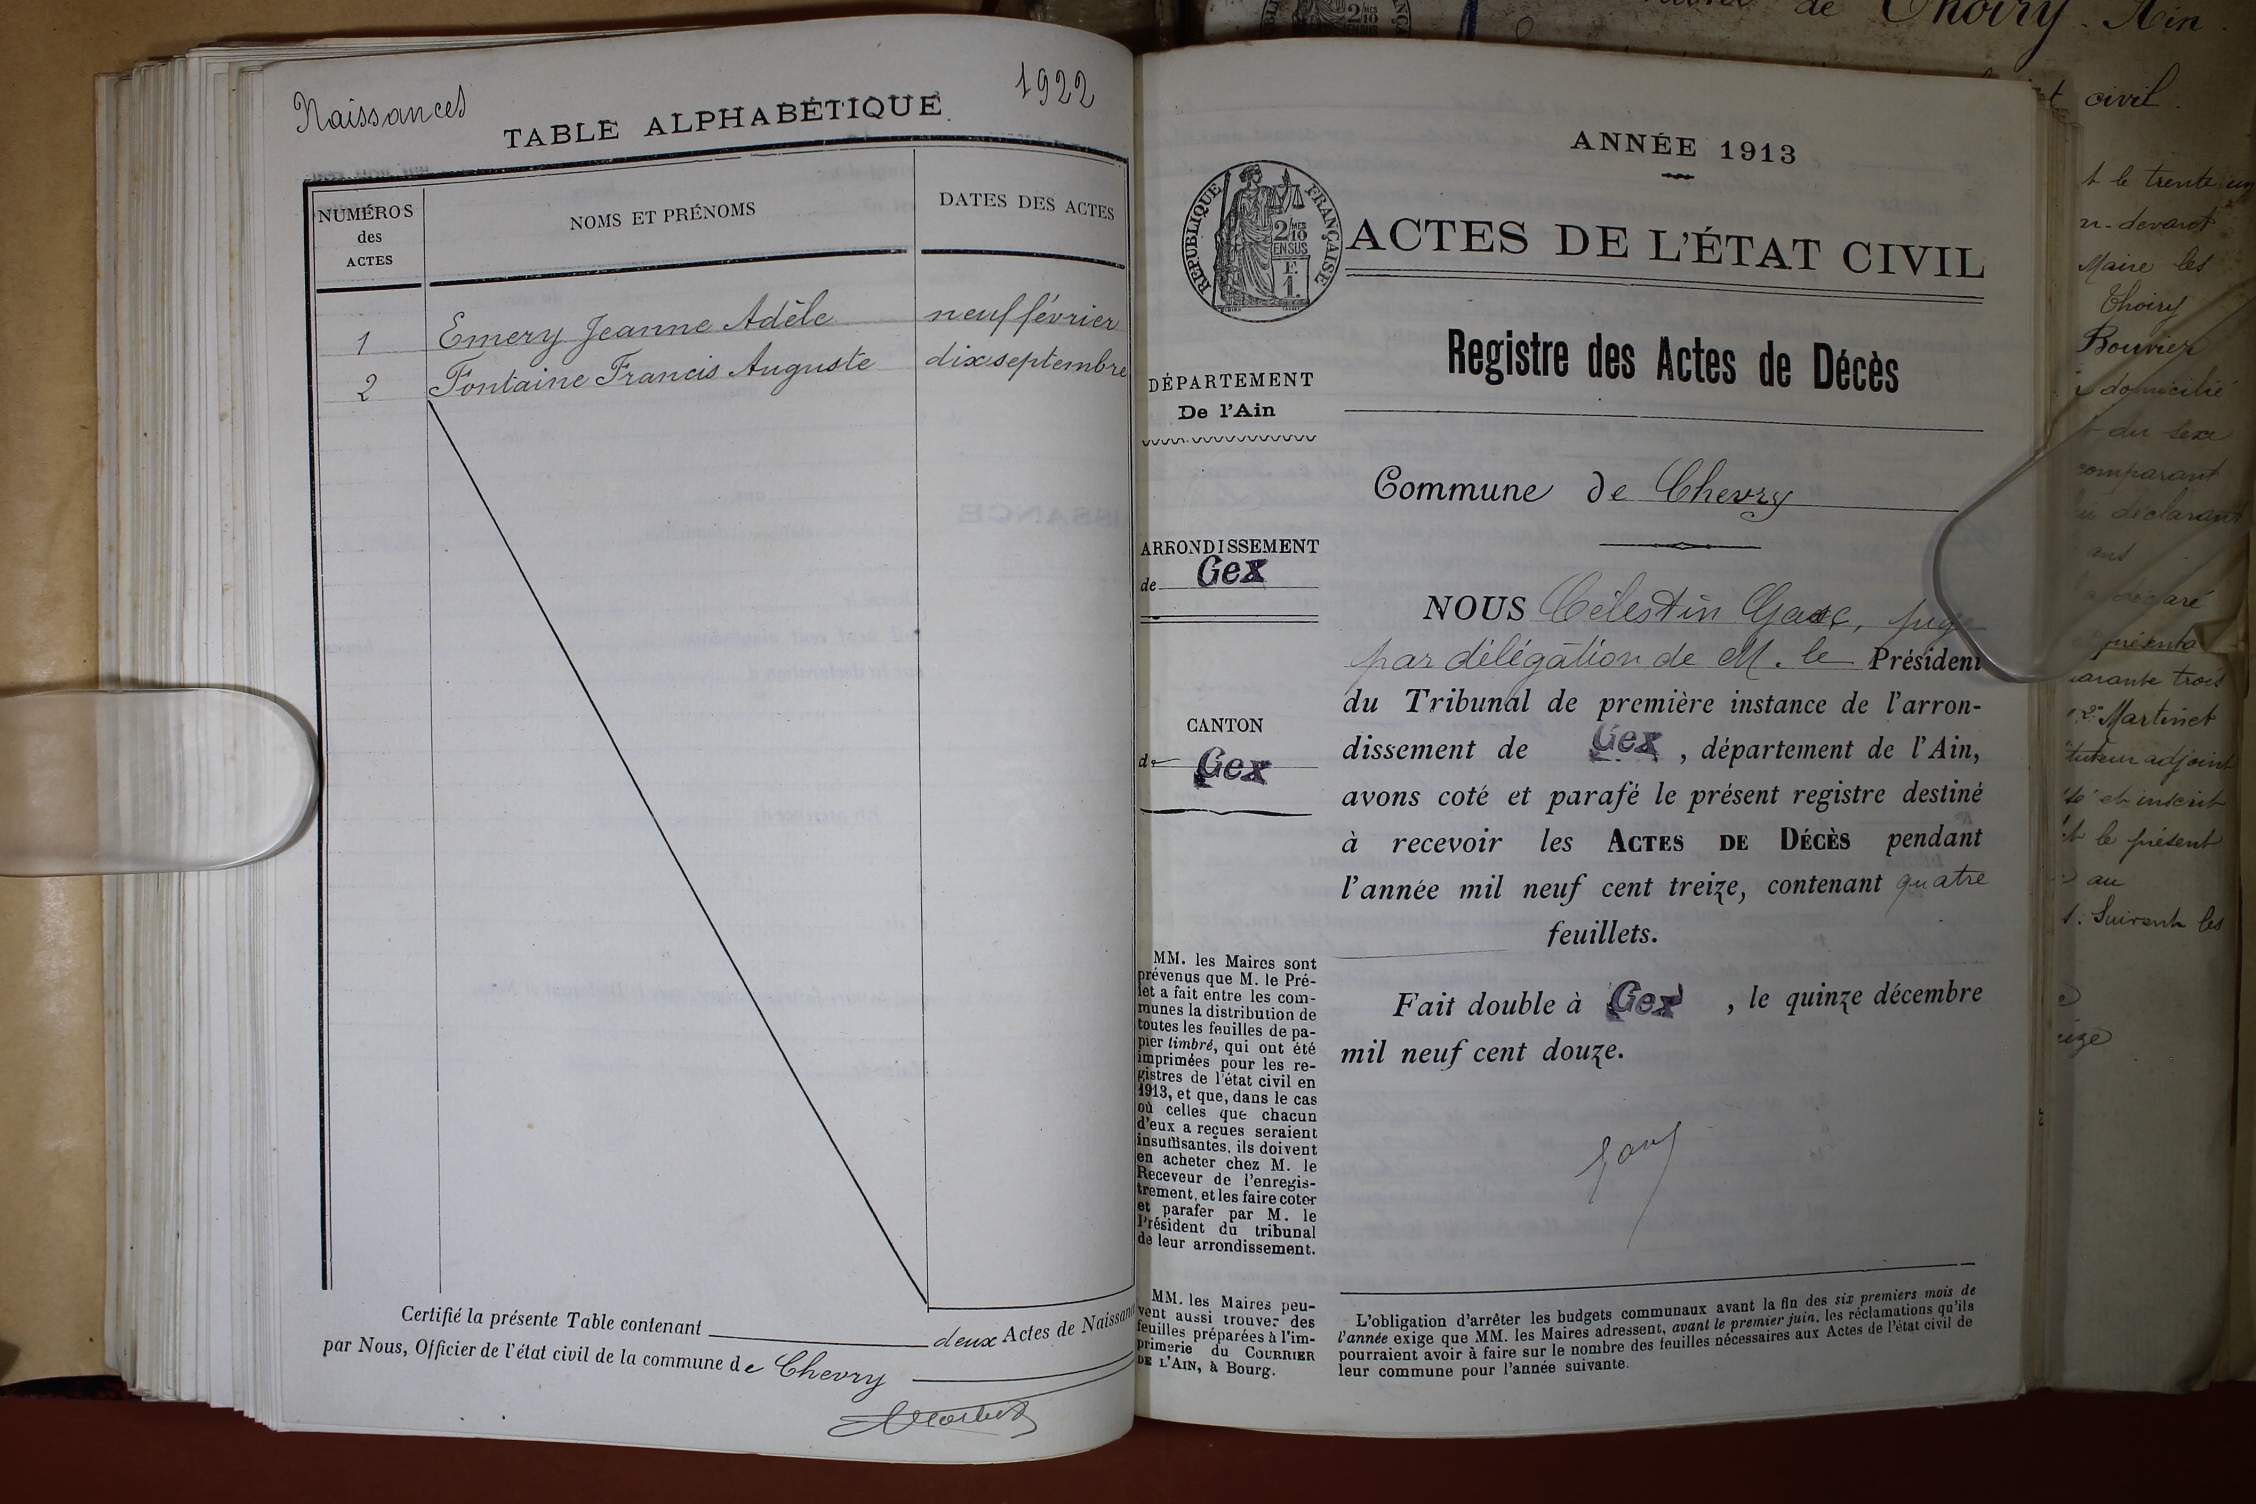 Naissances
TABLE ALPHABÉTIQUE
1922
NUMÉROS
des
ACTES
NOMS ET PRÉNOMS
DATES DES ACTES
1 Emery Jeanne Adèle neuf février
2 Fontaine Francis Auguste dix septembre
Certifié la présente Table contenant deux Actes de Naissan
par Nous, Officier de l'état civil de la commune de Chevry
ANNÉE 1913
RÉPUBLIQUE FRANÇAISE
2/10 MES
EN SUS
F.
1.
ACTES DE L'ÉTAT CIVIL
Registre des Actes de Décès
DÉPARTEMENT
De l'Ain
Commune de Chevry
ARRONDISSEMENT
de Gex
CANTON
de Gex
NOUS Célestin
par délégation de M. le Président
du Tribunal de première instance de l'arron-
dissement de Gex, département de l'Ain,
avons coté et parafé le présent registre destiné
à recevoir les ACTES DE DÉCÈS pendant
l'année mil neuf cent treize, contenant quatre
feuillets.
Fait double à Gex, le quinze décembre
mil neuf cent douze.
MM. les Maires sont
prévenus que M. le Pré-
fet a fait entre les com-
munes la distribution de
toutes les feuilles de pa-
pier timbré, qui ont été
imprimées pour les re-
gistres de l'état civil en
1913, et que, dans le cas
où celles que chacun
d'eux a reçues seraient
insuffisantes, ils doivent
en acheter chez M. le
Receveur de l'enregis-
trement, et les faire coter
et parafer par M. le
Président du tribunal
de leur arrondissement.
MM. les Maires peu-
vent aussi trouver des
feuilles préparées à l'im-
primerie du COURRIER
DE L'AIN, à Bourg.
L'obligation d'arrêter les budgets communaux avant la fin des six premiers mois de
l'année exige que MM. les Maires adressent, avant le premier juin, les réclamations qu'ils
pourraient avoir à faire sur le nombre des feuilles nécessaires aux Actes de l'état civil de
leur commune pour l'année suivante.
de Thoiry. Ain.
civil.
le trente un
devant
Maire les
Thoiry
Bouvier
domicilié
du sexe
comparant
déclarant
ans
présenta
trois
Martinet
adjoint
et inscrit
le présent
au
Suivent les